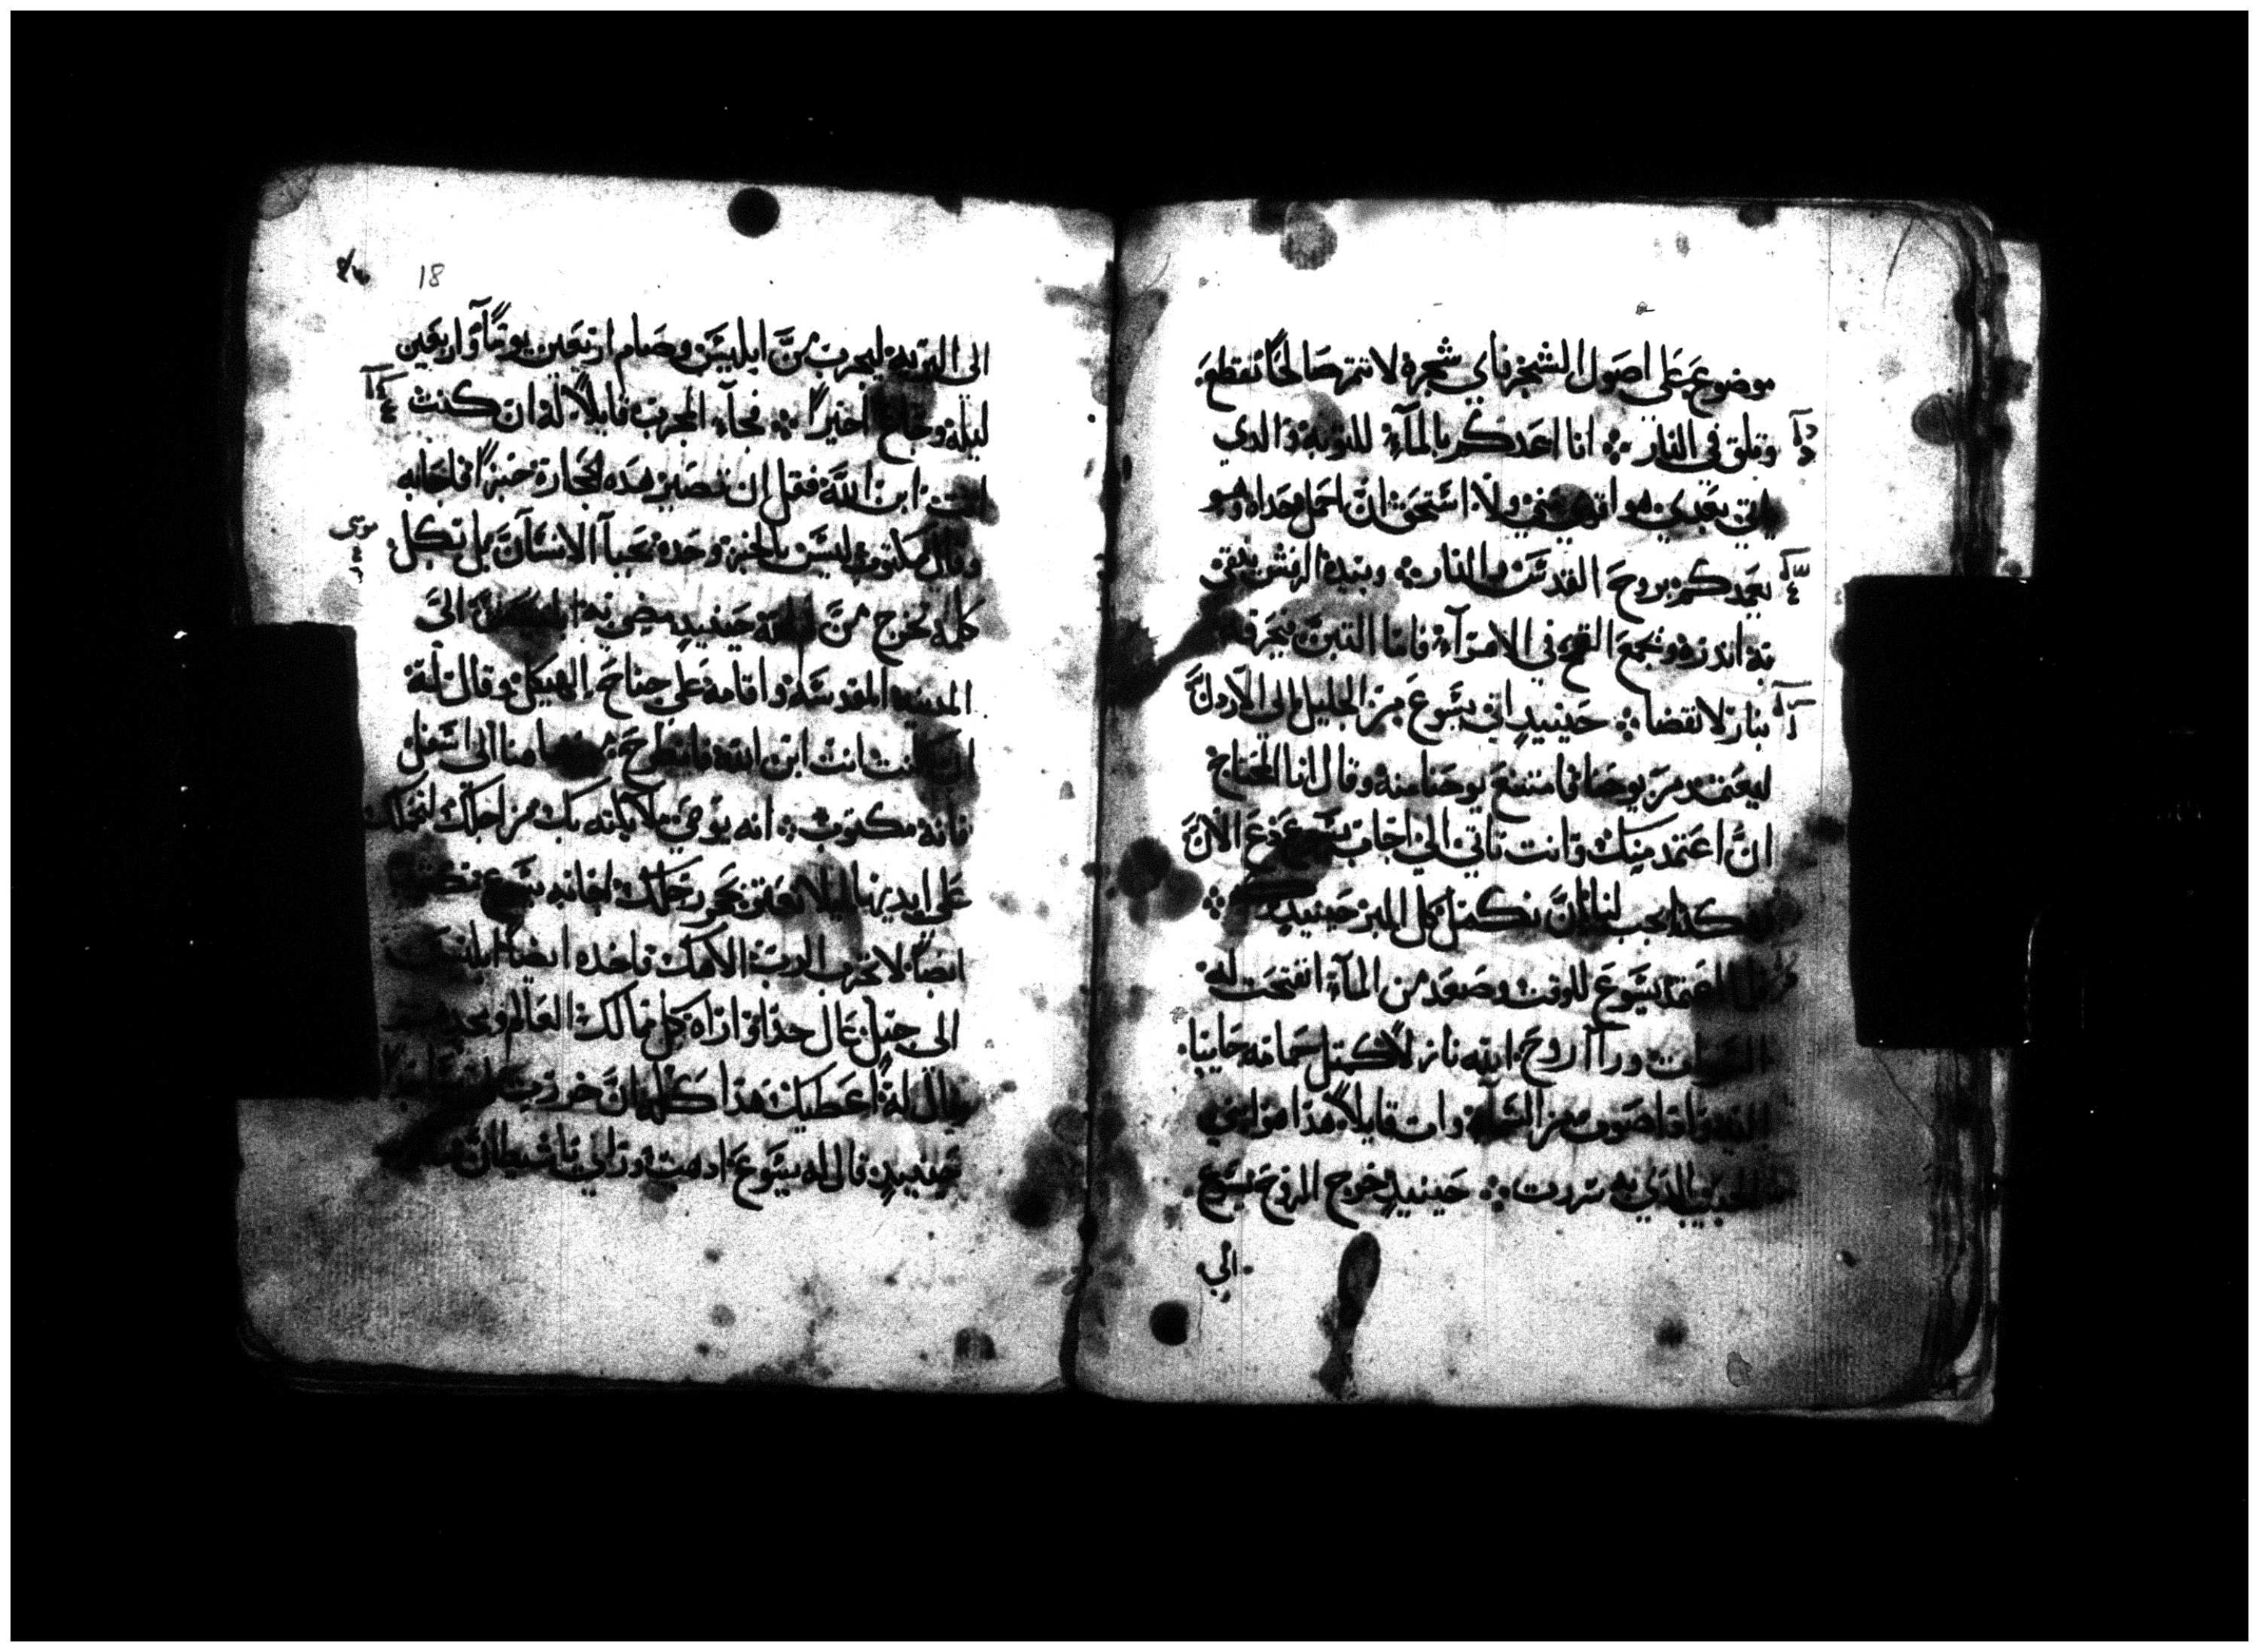 موضوع على اصول الشجر فاي شجره لا تثمر صالحًا تقطع
وتلق في النار ؞ انا اعمدكم بالمآء للتوبة والدي
ياتي بعدي هو اقوي مني ولا استحق ان احمل حداه وهو
يعمدكم بروح القدس والنار ؞ وبيده الرفش ينقي
به اندره ويجمع القمح في الاهرآء فاما التبن فيحرقه
بنار لا تقضا ؞ حينيدٍ اتى يسوع من الجليل الى الاردن
ليعتمد من يوحنا فامتنع يوحنا منه وقال انا المحتاج
ان اعتمد منك وانت تاتي الي اجاب يسوع دع الان
هكدا يجب لنا ان نكمل كل البر حينيدٍ ؞
فلما اعتمد يسوع للوقت وصعد من المآء انفتحت له
السموات ورآا روح الله نازلاً كمثل حمامه جاييا
اليه وادا صوت من السمآء وات قايلاً هدا هو ابني
الحبيب الدي به سررت ؞ حينيدٍ خرج الروح يسوع
الي
18
الى البريه ليجرب من ابليس وصام اربعين يومًا واربعين
ليلة وجاع اخيرًا ؞ فجآء المجرب قايلاً له ان كنت
انت ابن الله فقل ان تصير هده الحجارة خبزًا فاجابه
وقال مكتوب ليس بالخبز وحده يحيآ الانسآن بل بكل
كلمة تخرج من الله حينيدٍ مضي به ابليس الى
المدينه المقدسه واقامه على جناح الهيكل وقال له
ان كنت انت ابن الله فانطرح من هاهنا الى اسفل
فانه مكتوب ؞ انه يوصي ملايكته بك من اجلك لتحملك
على ايديها ليلا تعتر بحجر رجلك اجابه يسوع مكتوب
ايضًا لا تجرب الرب الاهك فاخده ايضًا ابليس
الى جبل عال جدا واراه كل ممالك العالم ومجدهم
وقال له اعطيك هدا كله ان خررت
حينيدٍ قال له يسوع ادهب ورايي يا شيطان